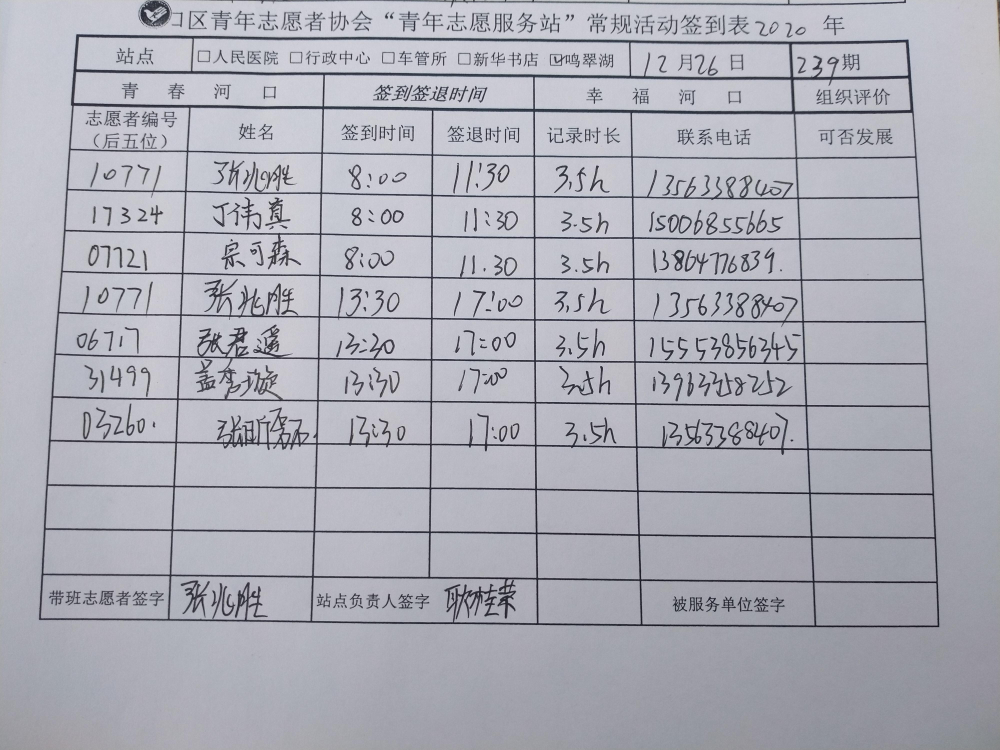 口区青年志愿者协会“青年志愿服务站”常规活动签到表2020年
站点 □人民医院 □行政中心 □车管所 □新华书店 ☑鸣翠湖 12月26日 239期
青春河口 签到签退时间 幸福河口 组织评价
志愿者编号（后五位） 姓名 签到时间 签退时间 记录时长 联系电话 可否发展
10771 张兆胜 8:00 11:30 3.5h 13563388407
17324 丁伟真 8:00 11:30 3.5h 15006855665
07721 宗可森 8:00 11.30 3.5h 13864776839.
10771 张兆胜 13:30 17:00 3.5h 13563388407
06717 张君遥 13:30 17:00 3.5h 15553856345
31499 盖李璇 13:30 17:00 3.5h 13963258252
03260. 13:30 17:00 3.5h 13563388407.
带班志愿者签字 张兆胜 站点负责人签字 耿桂荣 被服务单位签字